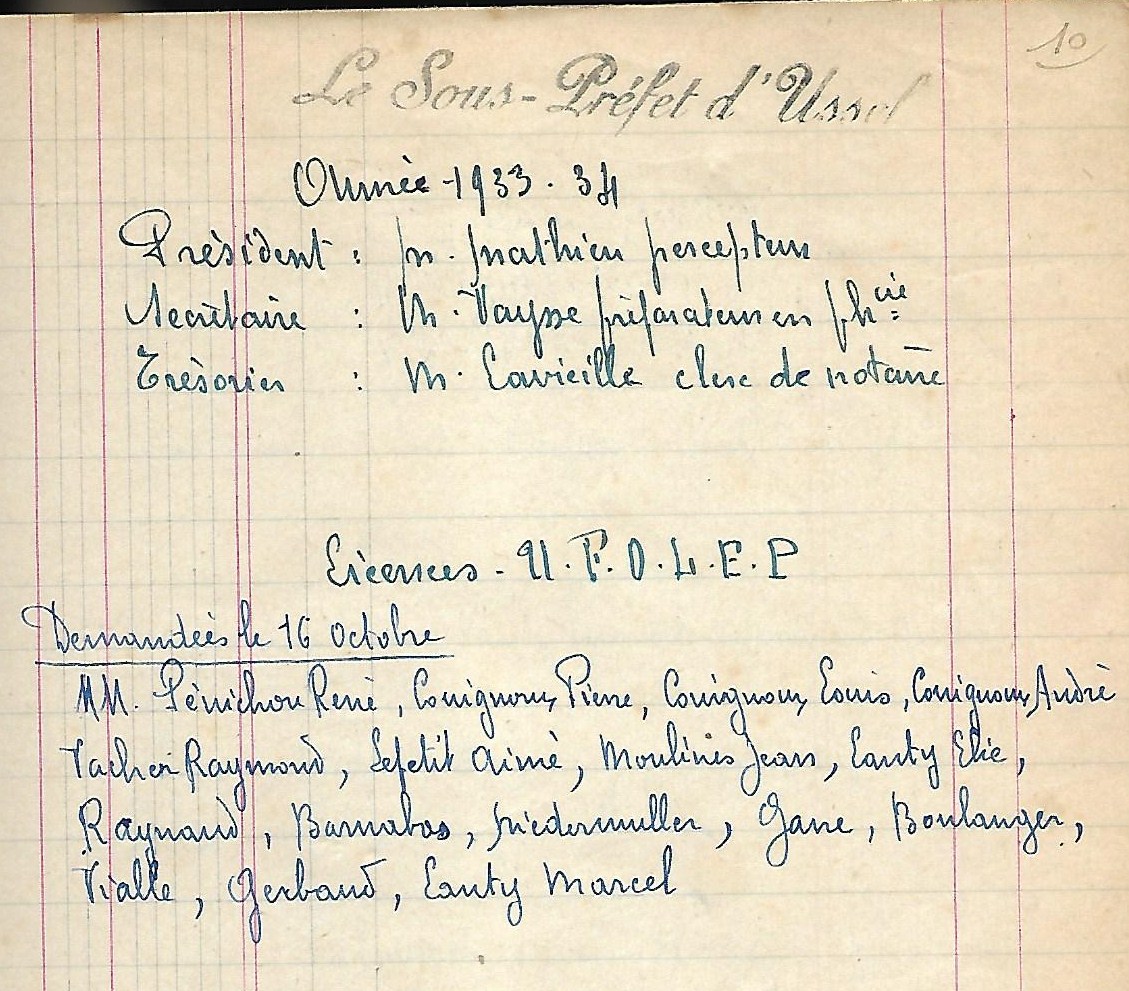 10
Le Sous-Préfet d'Ussel
Année 1933.34
Président : M. Mathieu percepteur
Secrétaire : M. Vaysse préparateur en ph^cie
Trésorier : M. Lavieille clerc de notaire
Licences - U.F.O.L.E.P
Demandées le 16 Octobre
MM. Pénichou René, Couignoux Pierre, Couignoux Louis, Couignoux André
Vacher Raymond, Lepetit Aimé, Moulinès Jean, Lanty Elie,
Raynaud, Barnabas, Niedermuller, Gane, Boulanger,
Vialle, Gerbaud, Lanty Marcel